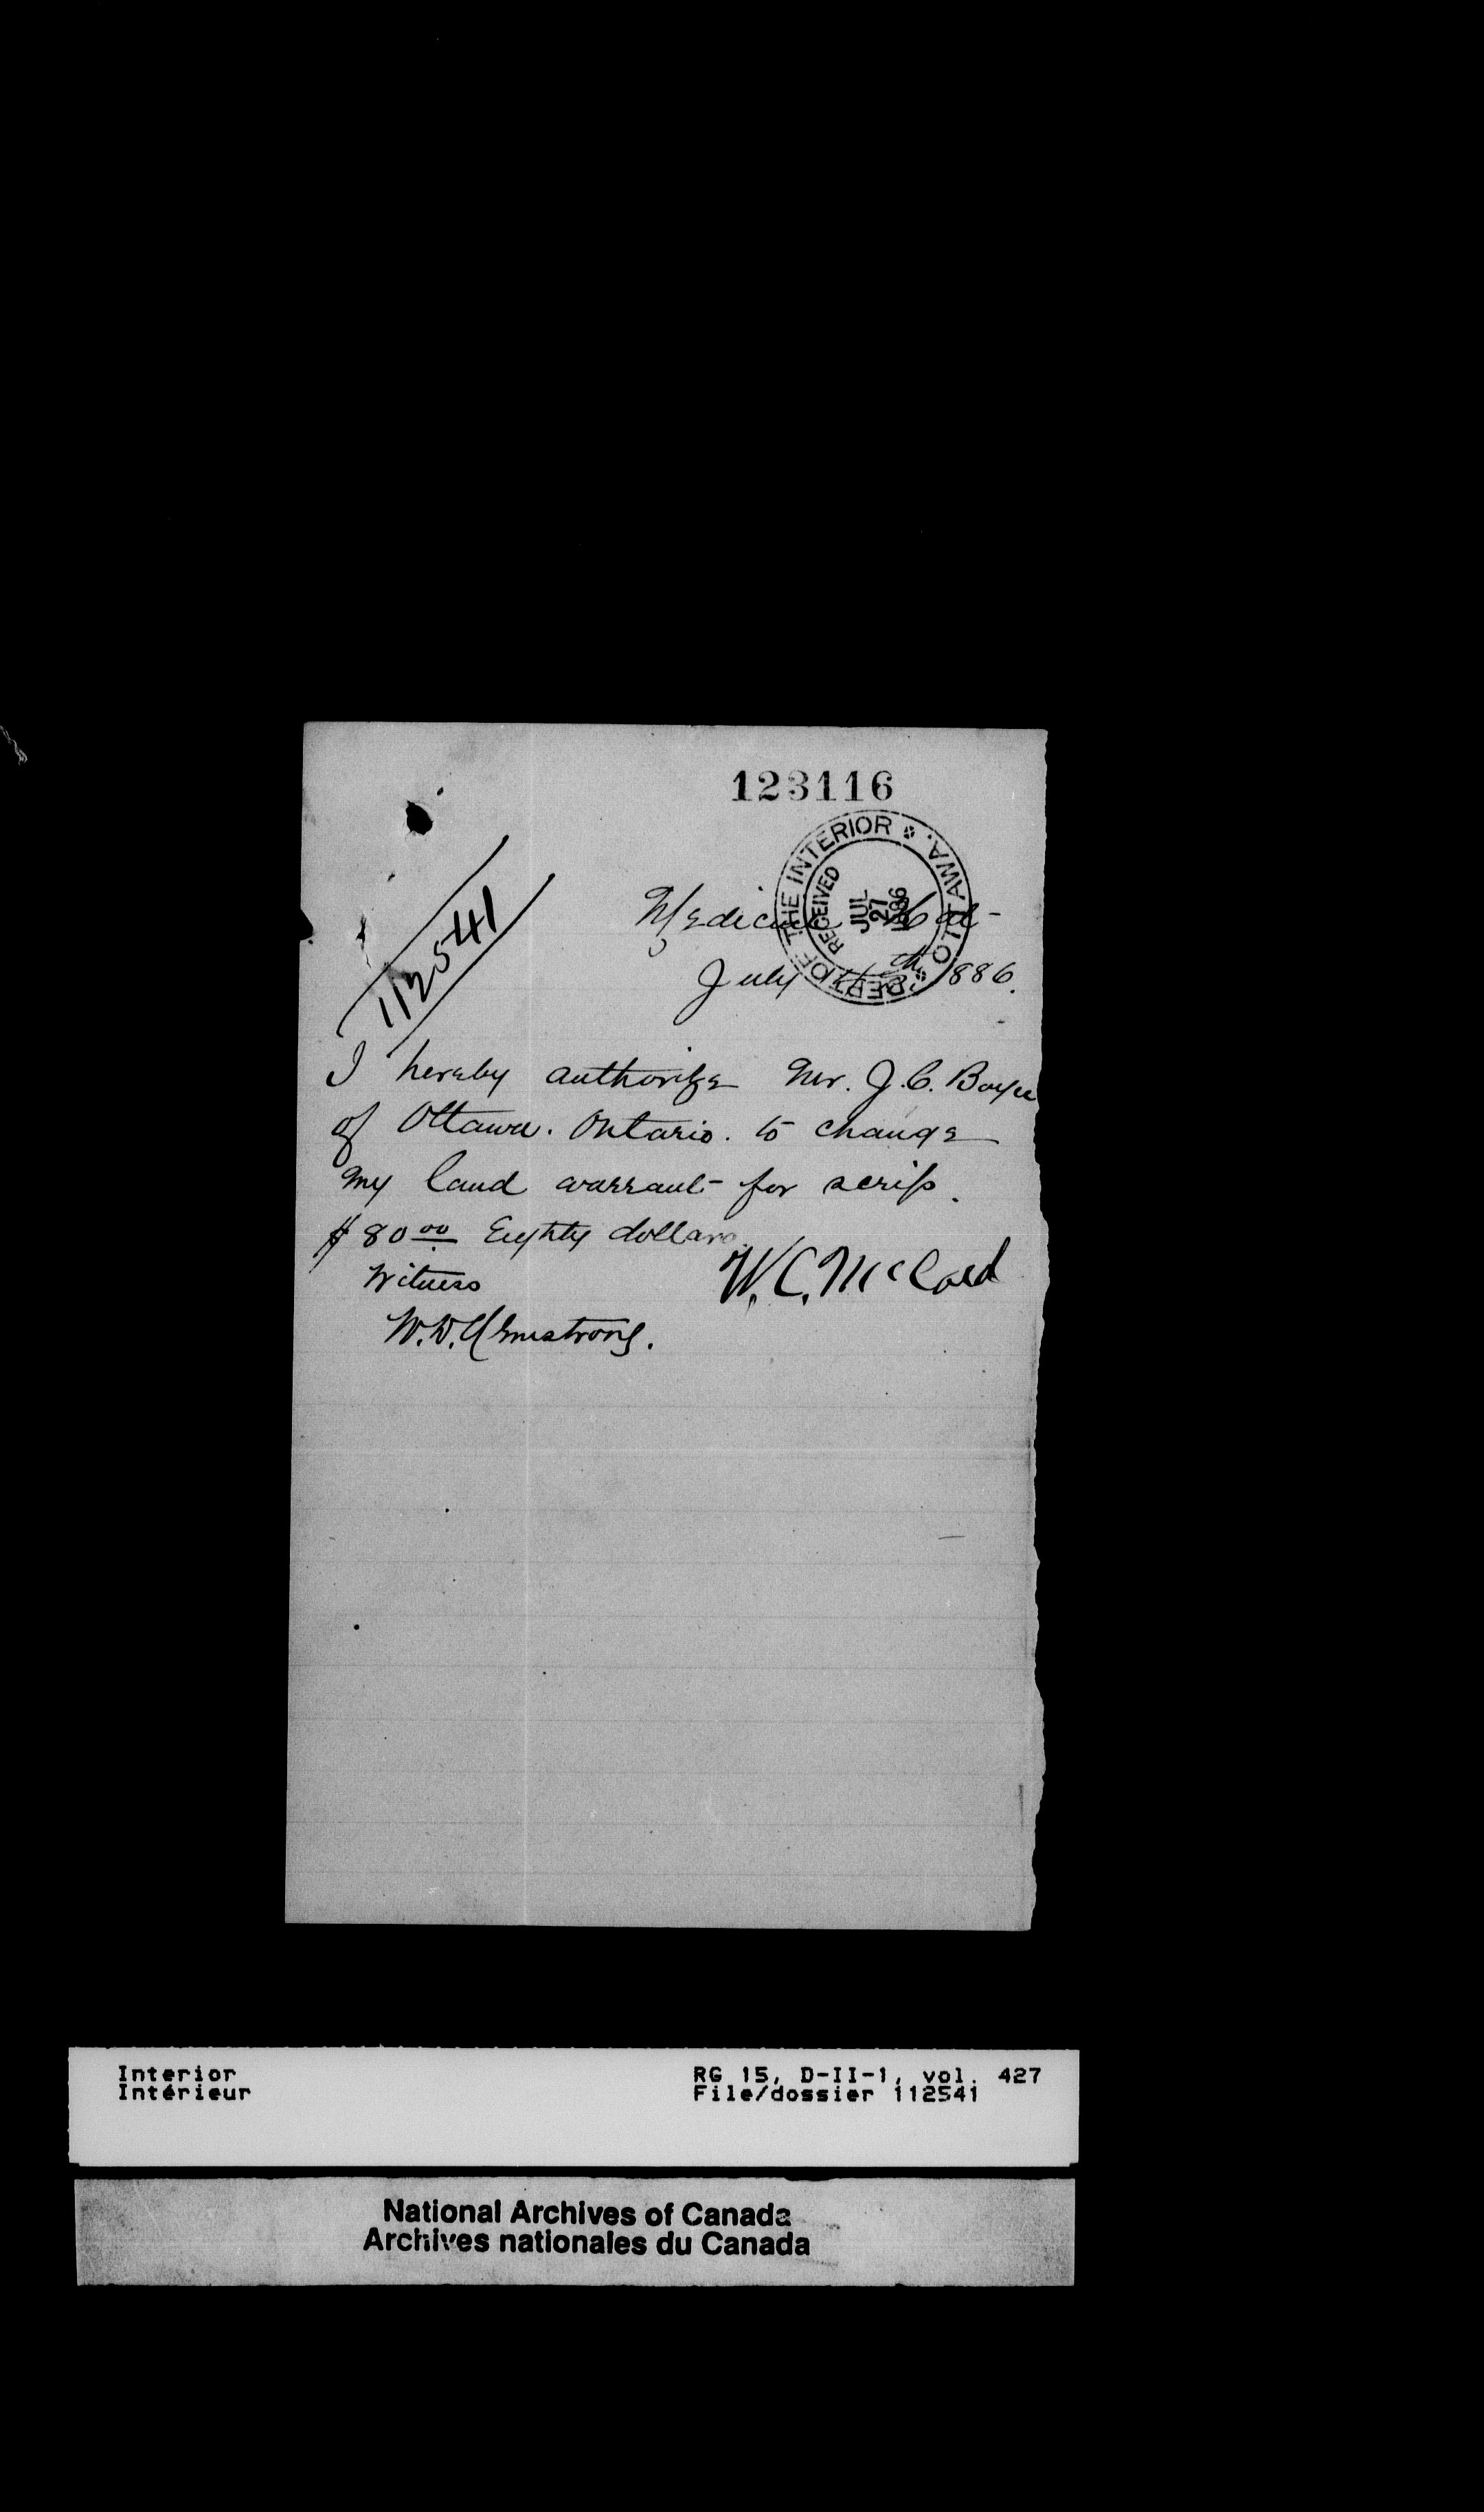 123116
DEPT. OF THE INTERIOR OTTAWA.
RECEIVED
JUL
27
1886
112541
Medicine Hat
July th 1886.
I hereby authorize Mr. J.C. Boyce
of Ottawa. Ontario. to change
my land warrant for scrip.
$80.00 Eighty dollars.
W.C. McCord
Witness
W.W. Armstrong.
Interior
Intérieur
RG 15, D-II-1, vol. 427
File/dossier 112541
National Archives of Canada
Archives nationales du Canada